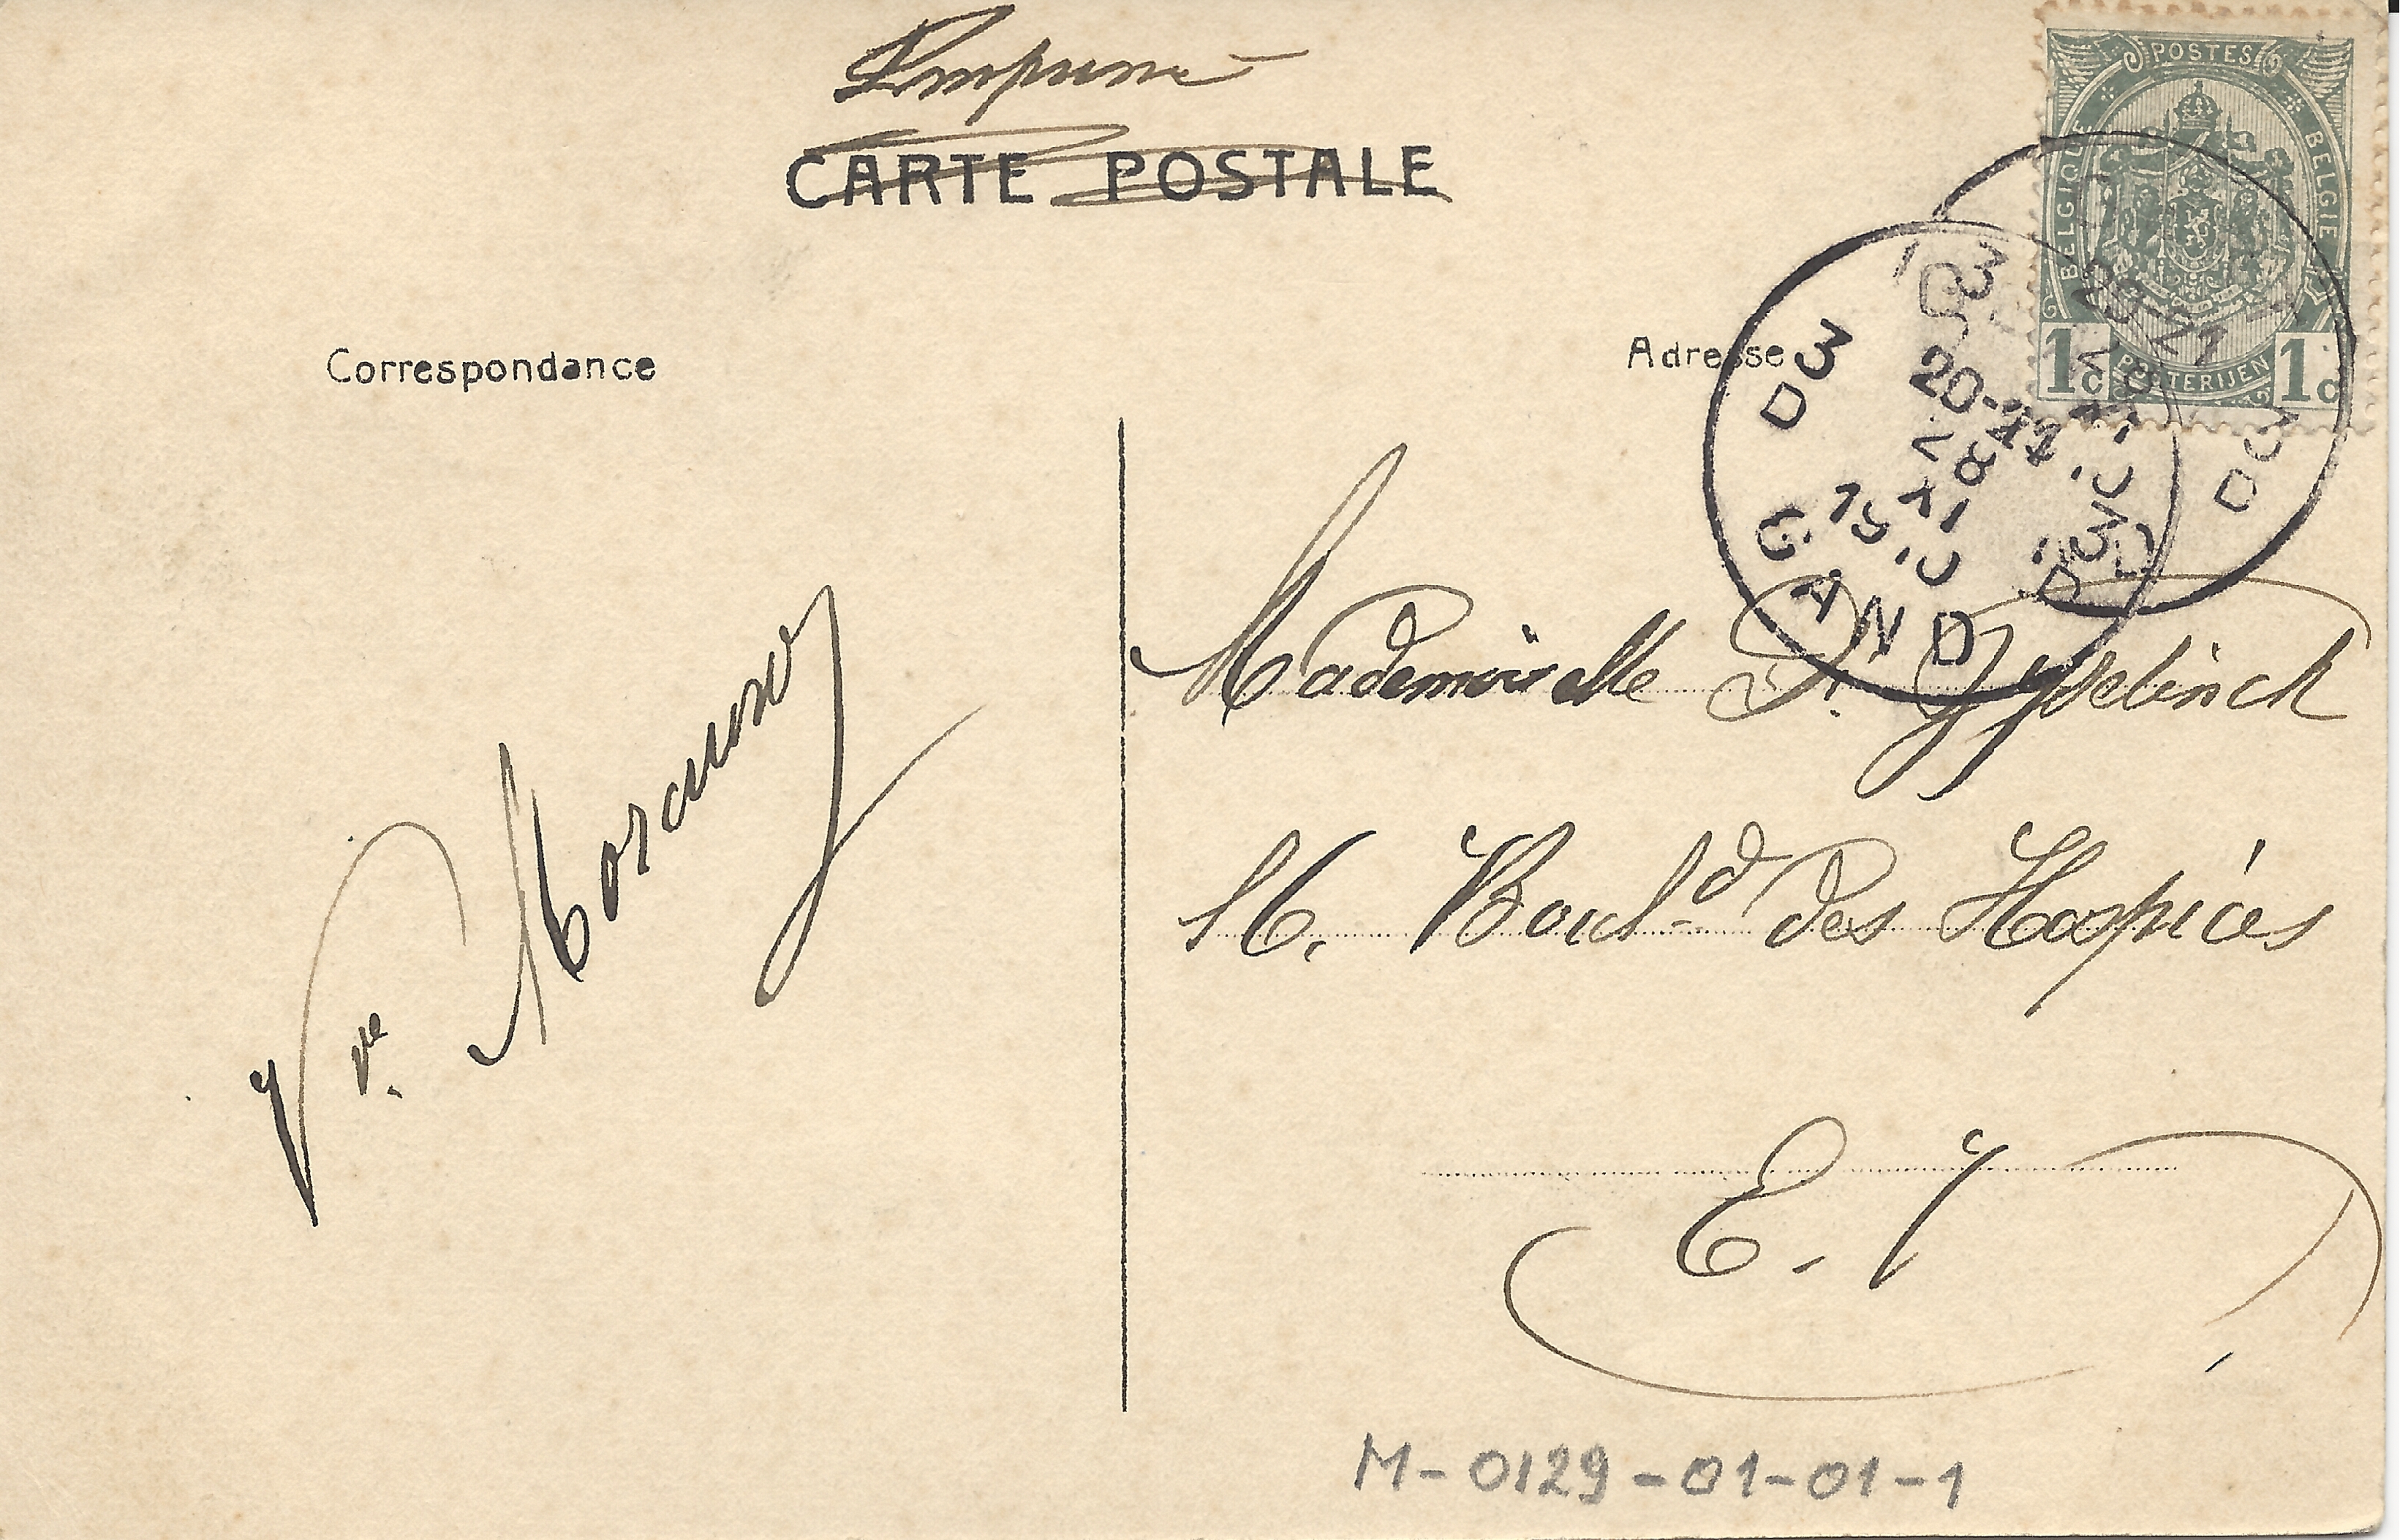 Imprimé
CARTE POSTALE
POSTES
BELGIQUE
BELGIE
POSTERIJEN
1c 1c
Correspondance
Adresse
3
D
20-21
28
XI
1910
GAND
Mademoiselle
16, Boul.d des Hospices
E. V
Vve.
M-0129-01-01-1